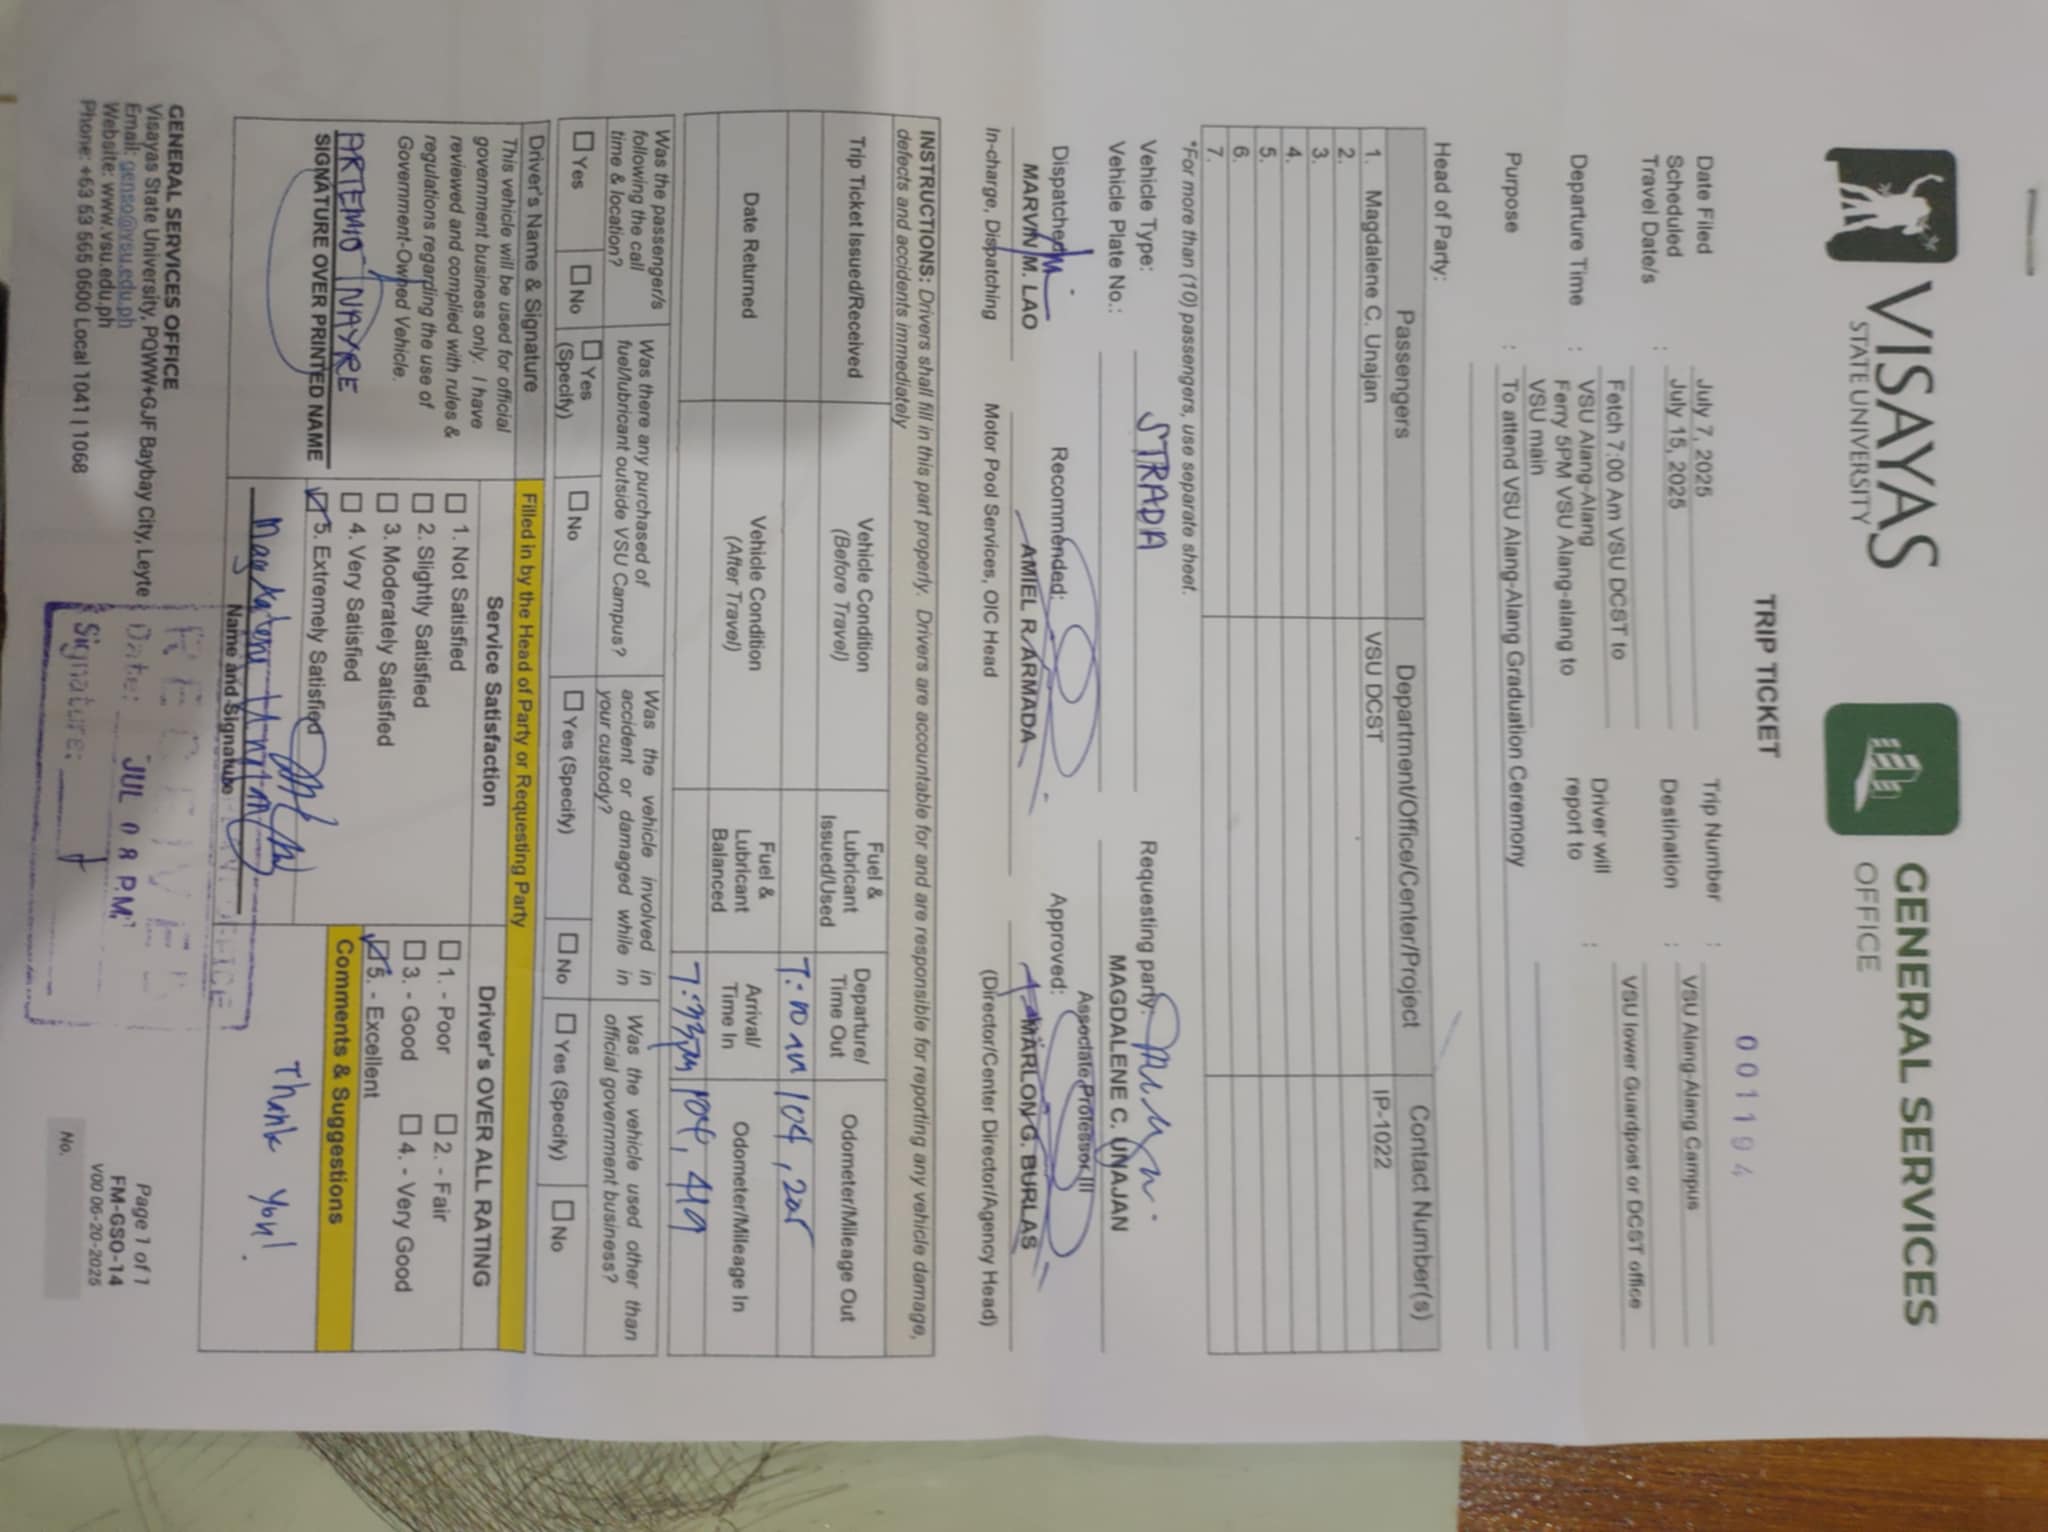 VISAYAS
STATE UNIVERSITY
GENERAL SERVICES
OFFICE
TRIP TICKET
001194
Date Filed : July 7, 2025
Trip Number :
Scheduled Travel Date/s : July 15, 2025
Destination : VSU Alang-Alang Campus
Departure Time : Fetch 7:00 Am VSU DCST to
VSU Alang-Alang
Ferry 5PM VSU Alang-alang to
VSU main
Driver will report to : VSU lower Guardpost or DCST office
Purpose : To attend VSU Alang-Alang Graduation Ceremony
Head of Party:
Passengers Department/Office/Center/Project Contact Number(s)
1. Magdalene C. Unajan VSU DCST IP-1022
2.
3.
4.
5.
6.
7.
*For more than (10) passengers, use separate sheet.
Vehicle Type: STRADA
Requesting party:
Vehicle Plate No.:
MAGDALENE C. UNAJAN
Associate Professor III
Dispatched: Recommended: Approved:
MARVIN M. LAO AMIEL R. ARMADA MARLON G. BURLAS
In-charge, Dispatching Motor Pool Services, OIC Head (Director/Center Director/Agency Head)
INSTRUCTIONS: Drivers shall fill in this part properly. Drivers are accountable for and are responsible for reporting any vehicle damage,
defects and accidents immediately
Trip Ticket Issued/Received Vehicle Condition (Before Travel) Fuel & Lubricant Issued/Used Departure/ Time Out Odometer/Mileage Out
Date Returned Vehicle Condition (After Travel) Fuel & Lubricant Balanced Arrival/ Time In Odometer/Mileage In
104, 419
Was the passenger/s following the call time & location?
Was there any purchased of fuel/lubricant outside VSU Campus?
Was the vehicle involved in accident or damaged while in your custody?
Was the vehicle used other than official government business?
☐ Yes ☐ No ☐ Yes (Specify) ☐ No ☐ Yes (Specify) ☐ No ☐ Yes (Specify) ☐ No
Driver's Name & Signature
Filled in by the Head of Party or Requesting Party
This vehicle will be used for official
government business only. I have
reviewed and complied with rules &
regulations regarding the use of
Government-Owned Vehicle.
ARTEMIO NAYRE
SIGNATURE OVER PRINTED NAME
Service Satisfaction
☐ 1. Not Satisfied
☐ 2. Slightly Satisfied
☐ 3. Moderately Satisfied
☐ 4. Very Satisfied
☑ 5. Extremely Satisfied
Magdalene Unajan
Name and Signature
Driver's OVER ALL RATING
☐ 1. - Poor ☐ 2. - Fair
☐ 3. - Good ☐ 4. - Very Good
☑ 5. - Excellent
Comments & Suggestions
Thank you!
RECEIVED
Date: JUL 08 P.M.
Signature:
GENERAL SERVICES OFFICE
Visayas State University, PQWW+GJF Baybay City, Leyte
Email: genso@vsu.edu.ph
Website: www.vsu.edu.ph
Phone: +63 53 565 0600 Local 1041 | 1068
Page 1 of 1
FM-GSO-14
V00 06-20-2025
No.